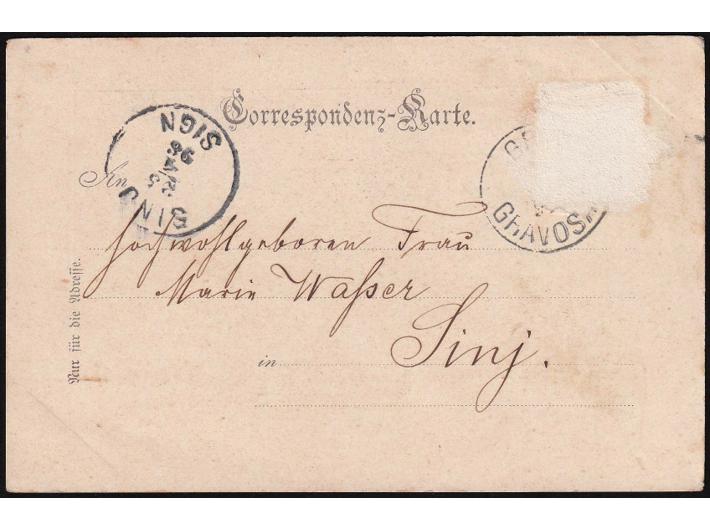 Correspondenz-Karte.
SIGN
SINJ
98
An
GRAVOSA
hochwohlgeboren Frau
Marie Waßer
in Sinj.
Nur für die Adresse.